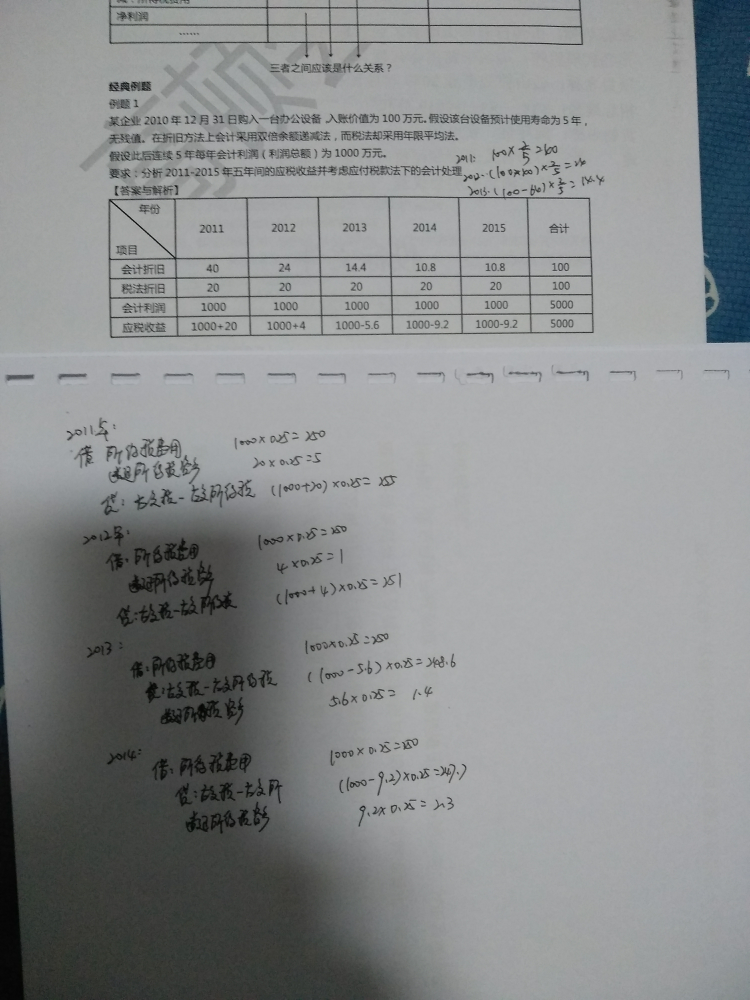 净利润
……
三者之间应该是什么关系？
经典例题
例题 1
某企业 2010 年 12 月 31 日购入一台办公设备，入账价值为 100 万元。假设该台设备预计使用寿命为 5 年，
无残值。在折旧方法上会计采用双倍余额递减法，而税法却采用年限平均法。
假设此后连续 5 年每年会计利润（利润总额）为 1000 万元。
2011: 100×2/5=
要求：分析 2011-2015 年五年间的应税收益并考虑应付税款法下的会计处理
2012.
2013. (100-60)×2/5=14.4
【答案与解析】
年份 2011 2012 2013 2014 2015 合计
项目
会计折旧 40 24 14.4 10.8 10.8 100
税法折旧 20 20 20 20 20 100
会计利润 1000 1000 1000 1000 1000 5000
应税收益 1000+20 1000+4 1000-5.6 1000-9.2 1000-9.2 5000
2011年:
借 所得税费用 1000×0.25=250
递延所得税资产 20×0.25=5
贷: 应交税-应交所得税 (1000+20)×0.25=255
2012年:
借: 所得税费用 1000×0.25=250
递延所得税资产 4×0.25=1
贷: 应交税-应交所得税 (1000+4)×0.25=251
2013:
借: 所得税费用 1000×0.25=250
贷: 应交税-应交所得税 (1000-5.6)×0.25=248.6
递延所得税资产 5.6×0.25=1.4
2014:
借: 所得税费用 1000×0.25=250
贷: 应交税-应交所 (1000-9.2)×0.25=247.7
递延所得税资产 9.2×0.25=2.3